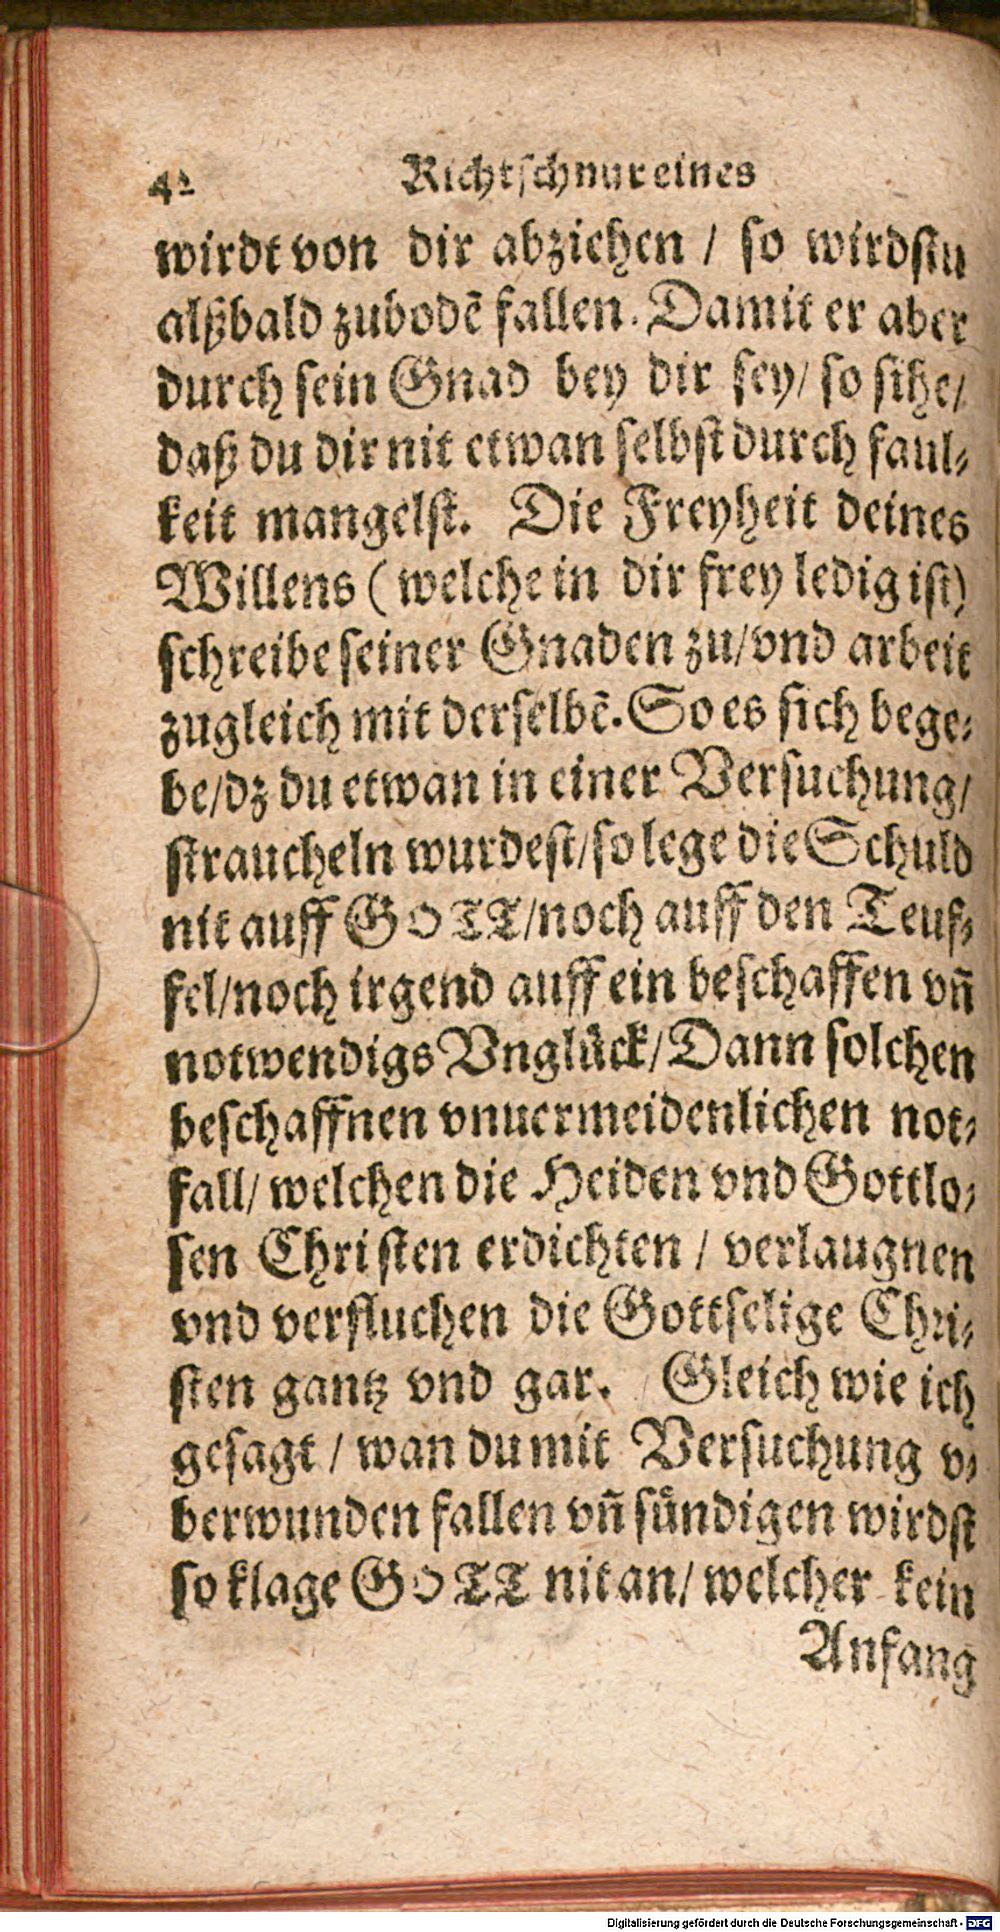 42 Richtschnur eines
wirdt von dir abziehen / so wirdstu
alßbald zubodẽ fallen. Damit er aber
durch sein Gnad bey dir sey/ so sihe/
daß du dir nit etwan selbst durch faul-
keit mangelst. Die Freyheit deines
Willens (welche in dir frey ledig ist)
schreibe seiner Gnaden zu/vnd arbeit
zugleich mit derselbẽ. So es sich bege-
be/dz du etwan in einer Versuchung/
straucheln wurdest/so lege die Schuld
nit auff GOTT/noch auff den Teuf-
fel/noch irgend auff ein beschaffen vñ
notwendigs Vnglück/Dann solchen
beschaffnen vnuermeidenlichen not-
fall/ welchen die Heiden vnd Gottlo-
sen Christen erdichten / verlaugnen
vnd verfluchen die Gottselige Chri-
sten gantz vnd gar. Gleich wie ich
gesagt / wan du mit Versuchung v-
berwunden fallen vñ sündigen wirdst
so klage GOTT nit an/ welcher kein
Anfang
Digitalisierung gefördert durch die Deutsche Forschungsgemeinschaft - DFG